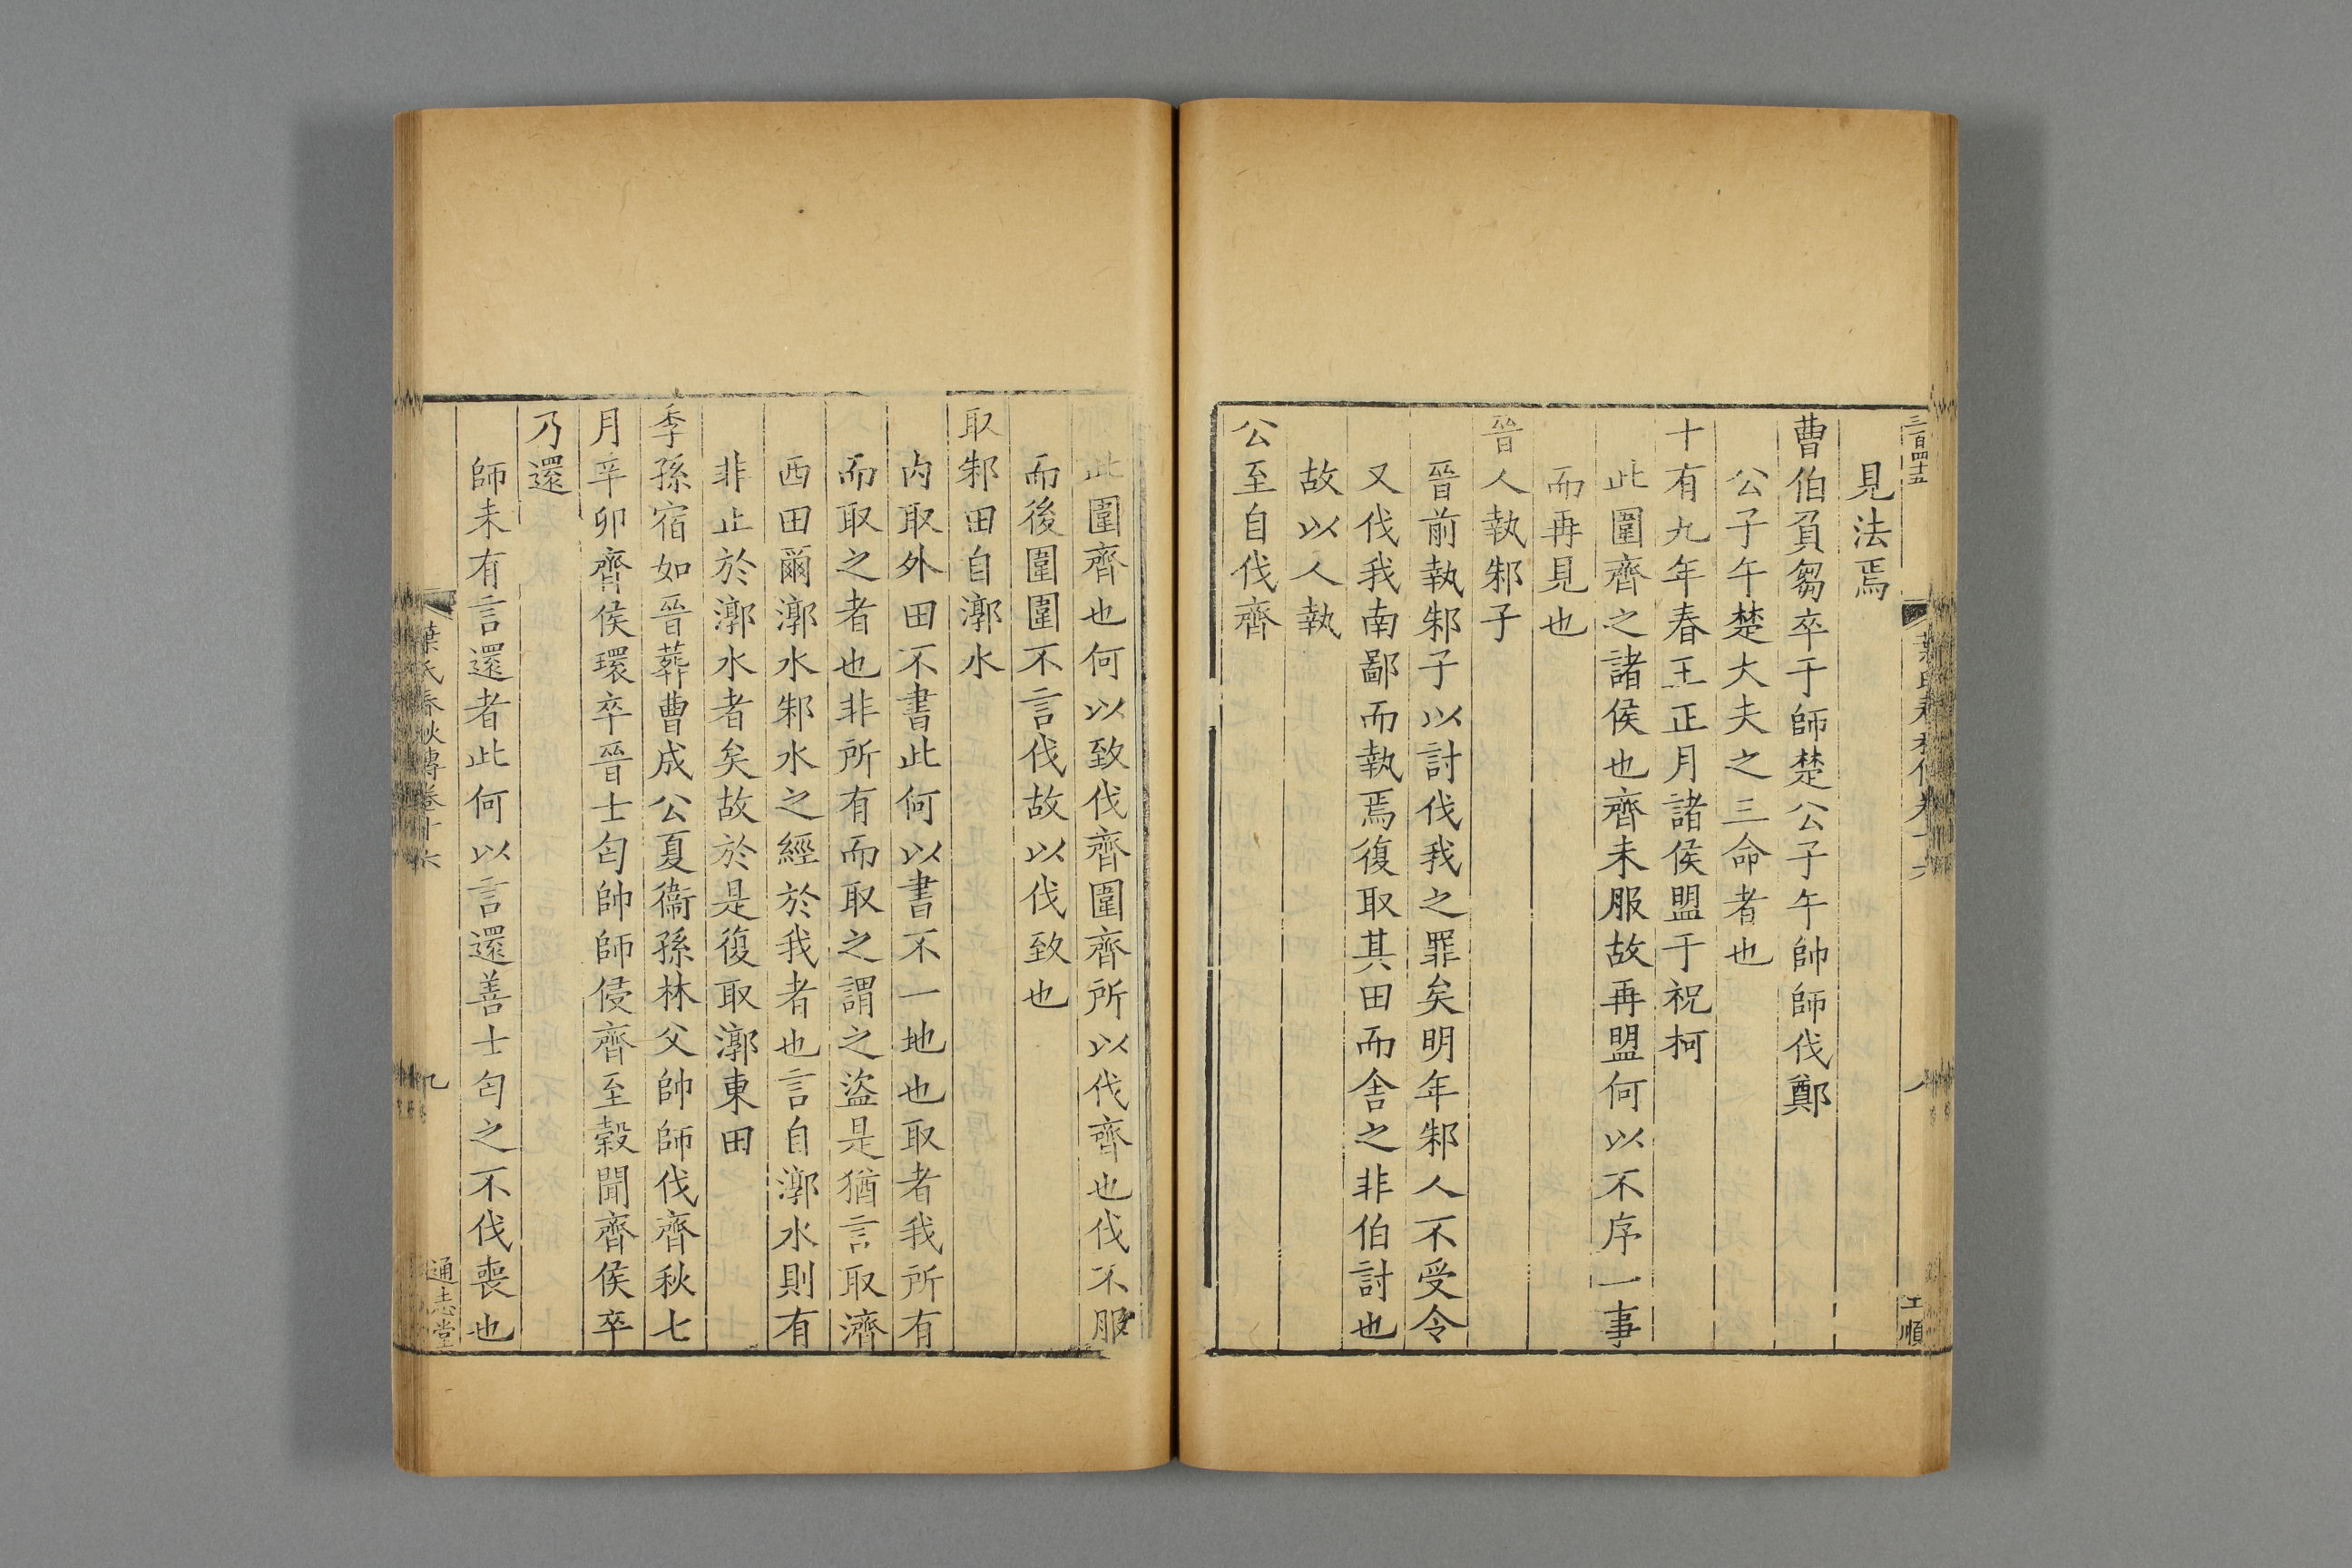 三百四十五
見法焉
曹伯負芻卒于師楚公子午帥師伐鄭
公子午楚大夫之三命者也
十有九年春王正月諸侯盟于祝柯
此圍齊之諸侯也齊未服故再盟何以不序一事
而再見也
晉人執邾子
晉前執邾子以討伐我之罪矣明年邾人不受令
又伐我南鄙而執焉復取其田而舍之非伯討也
故以人執
公至自伐齊
此圍齊也何以致伐齊圍齊所以伐齊也伐不服
而後圍圍不言伐故以伐致也
取邾田自漷水
内取外田不書此何以書不一地也取者我所有
而取之者也非所有而取之謂之盜是猶言取濟
西田爾漷水邾水之經於我者也言自漷水則有
非止於漷水者矣故於是復取漷東田
季孫宿如晉葬曹成公夏衞孫林父帥師伐齊秋七
月辛卯齊侯環卒晉士匄帥師侵齊至穀聞齊侯卒
乃還
師未有言還者此何以言還善士匄之不伐喪也
葉氏春秋傳卷十六
九
通志堂